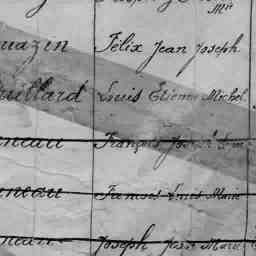 Mie
uazin Félix Jean Joseph
uillard Louis Etienne Michel
neau François Joseph
neau François Louis Marie
neau Joseph Jean Marie